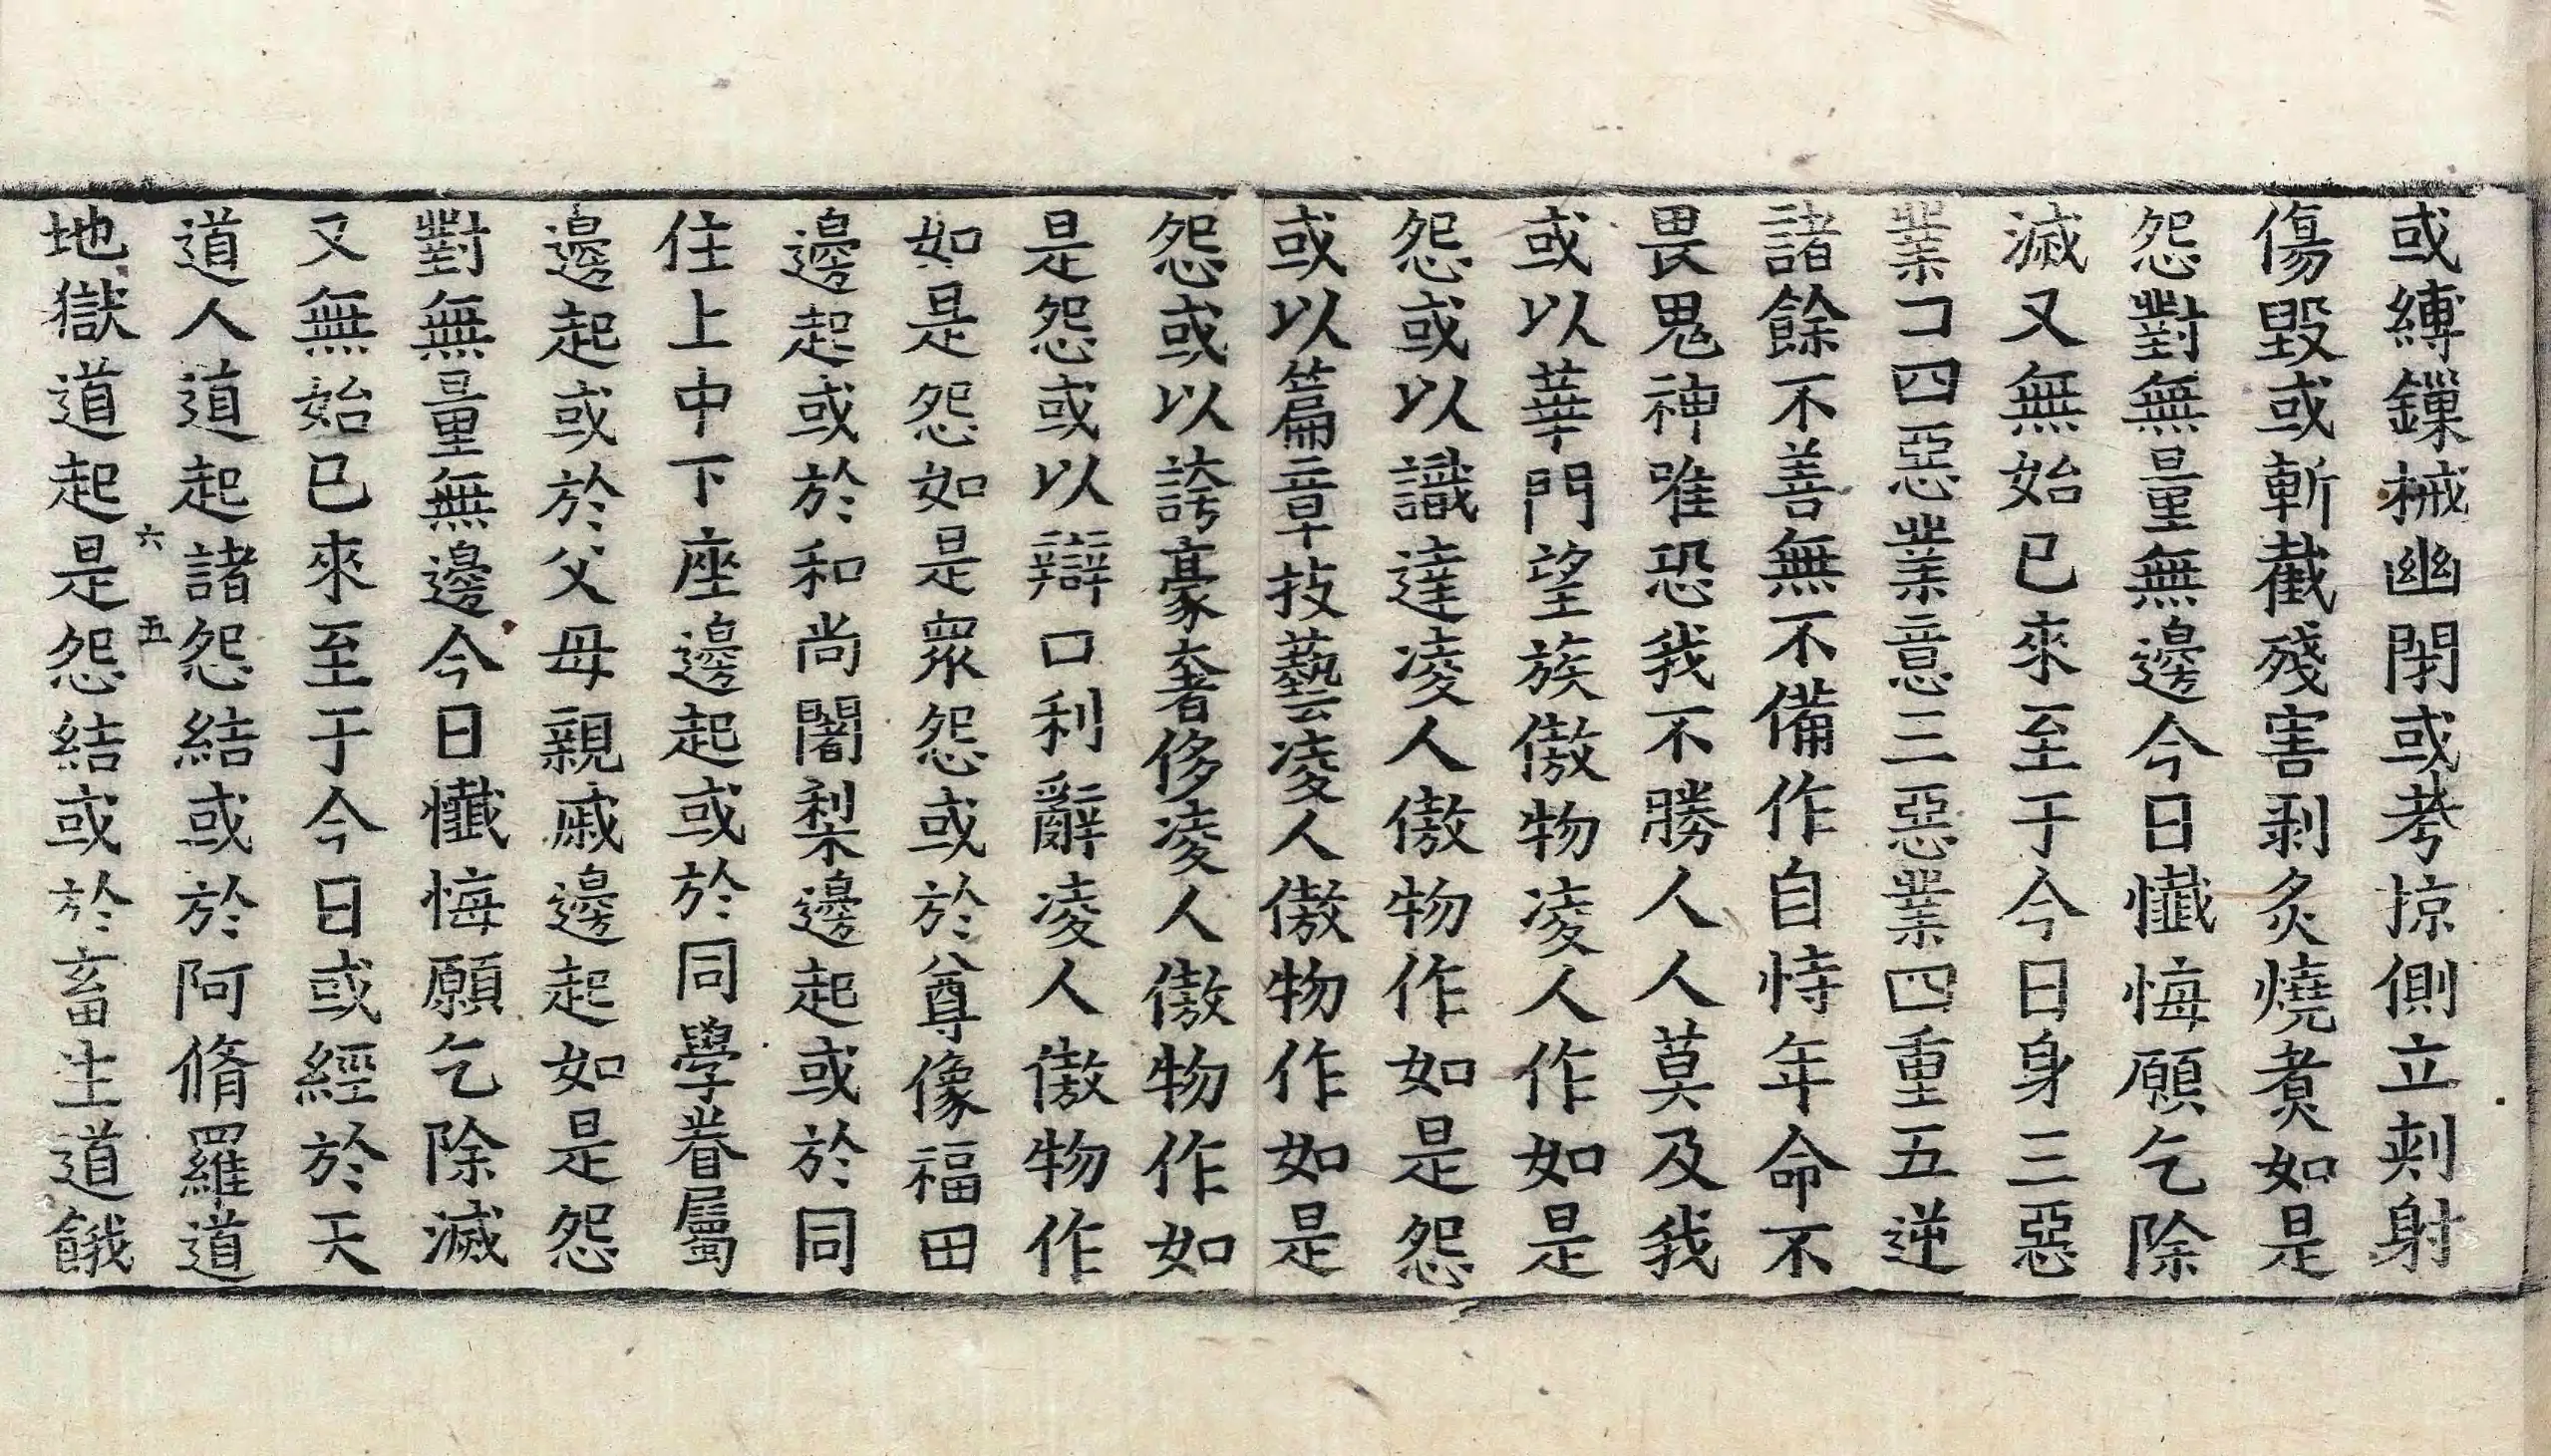 或縛鏁械幽閉或考掠側立刾射
傷毀或斬截殘害剥炙燒煑如是
怨對無量無邊今日懺悔願乞除
滅又無始已來至于今日身三惡
業口四惡業意三惡業四重五逆
諸餘不善無不備作自恃年命不
畏鬼神唯恐我不勝人人莫及我
或以華門望族傲物凌人作如是
怨或以識達凌人傲物作如是怨
或以篇章技藝凌人傲物作如是
怨或以誇豪奢侈凌人傲物作如
是怨或以辯口利辭凌人傲物作
如是怨如是眾怨或於尊像福田
邊起或於和尚闍梨邊起或於同
住上中下座邊起或於同學眷屬
邊起或於父母親戚邊起如是怨
對無量無邊今日懺悔願乞除滅
又無始已來至于今日或經於天
道人道起諸怨結或於阿脩羅道
六五
地獄道起是怨結或於畜生道餓